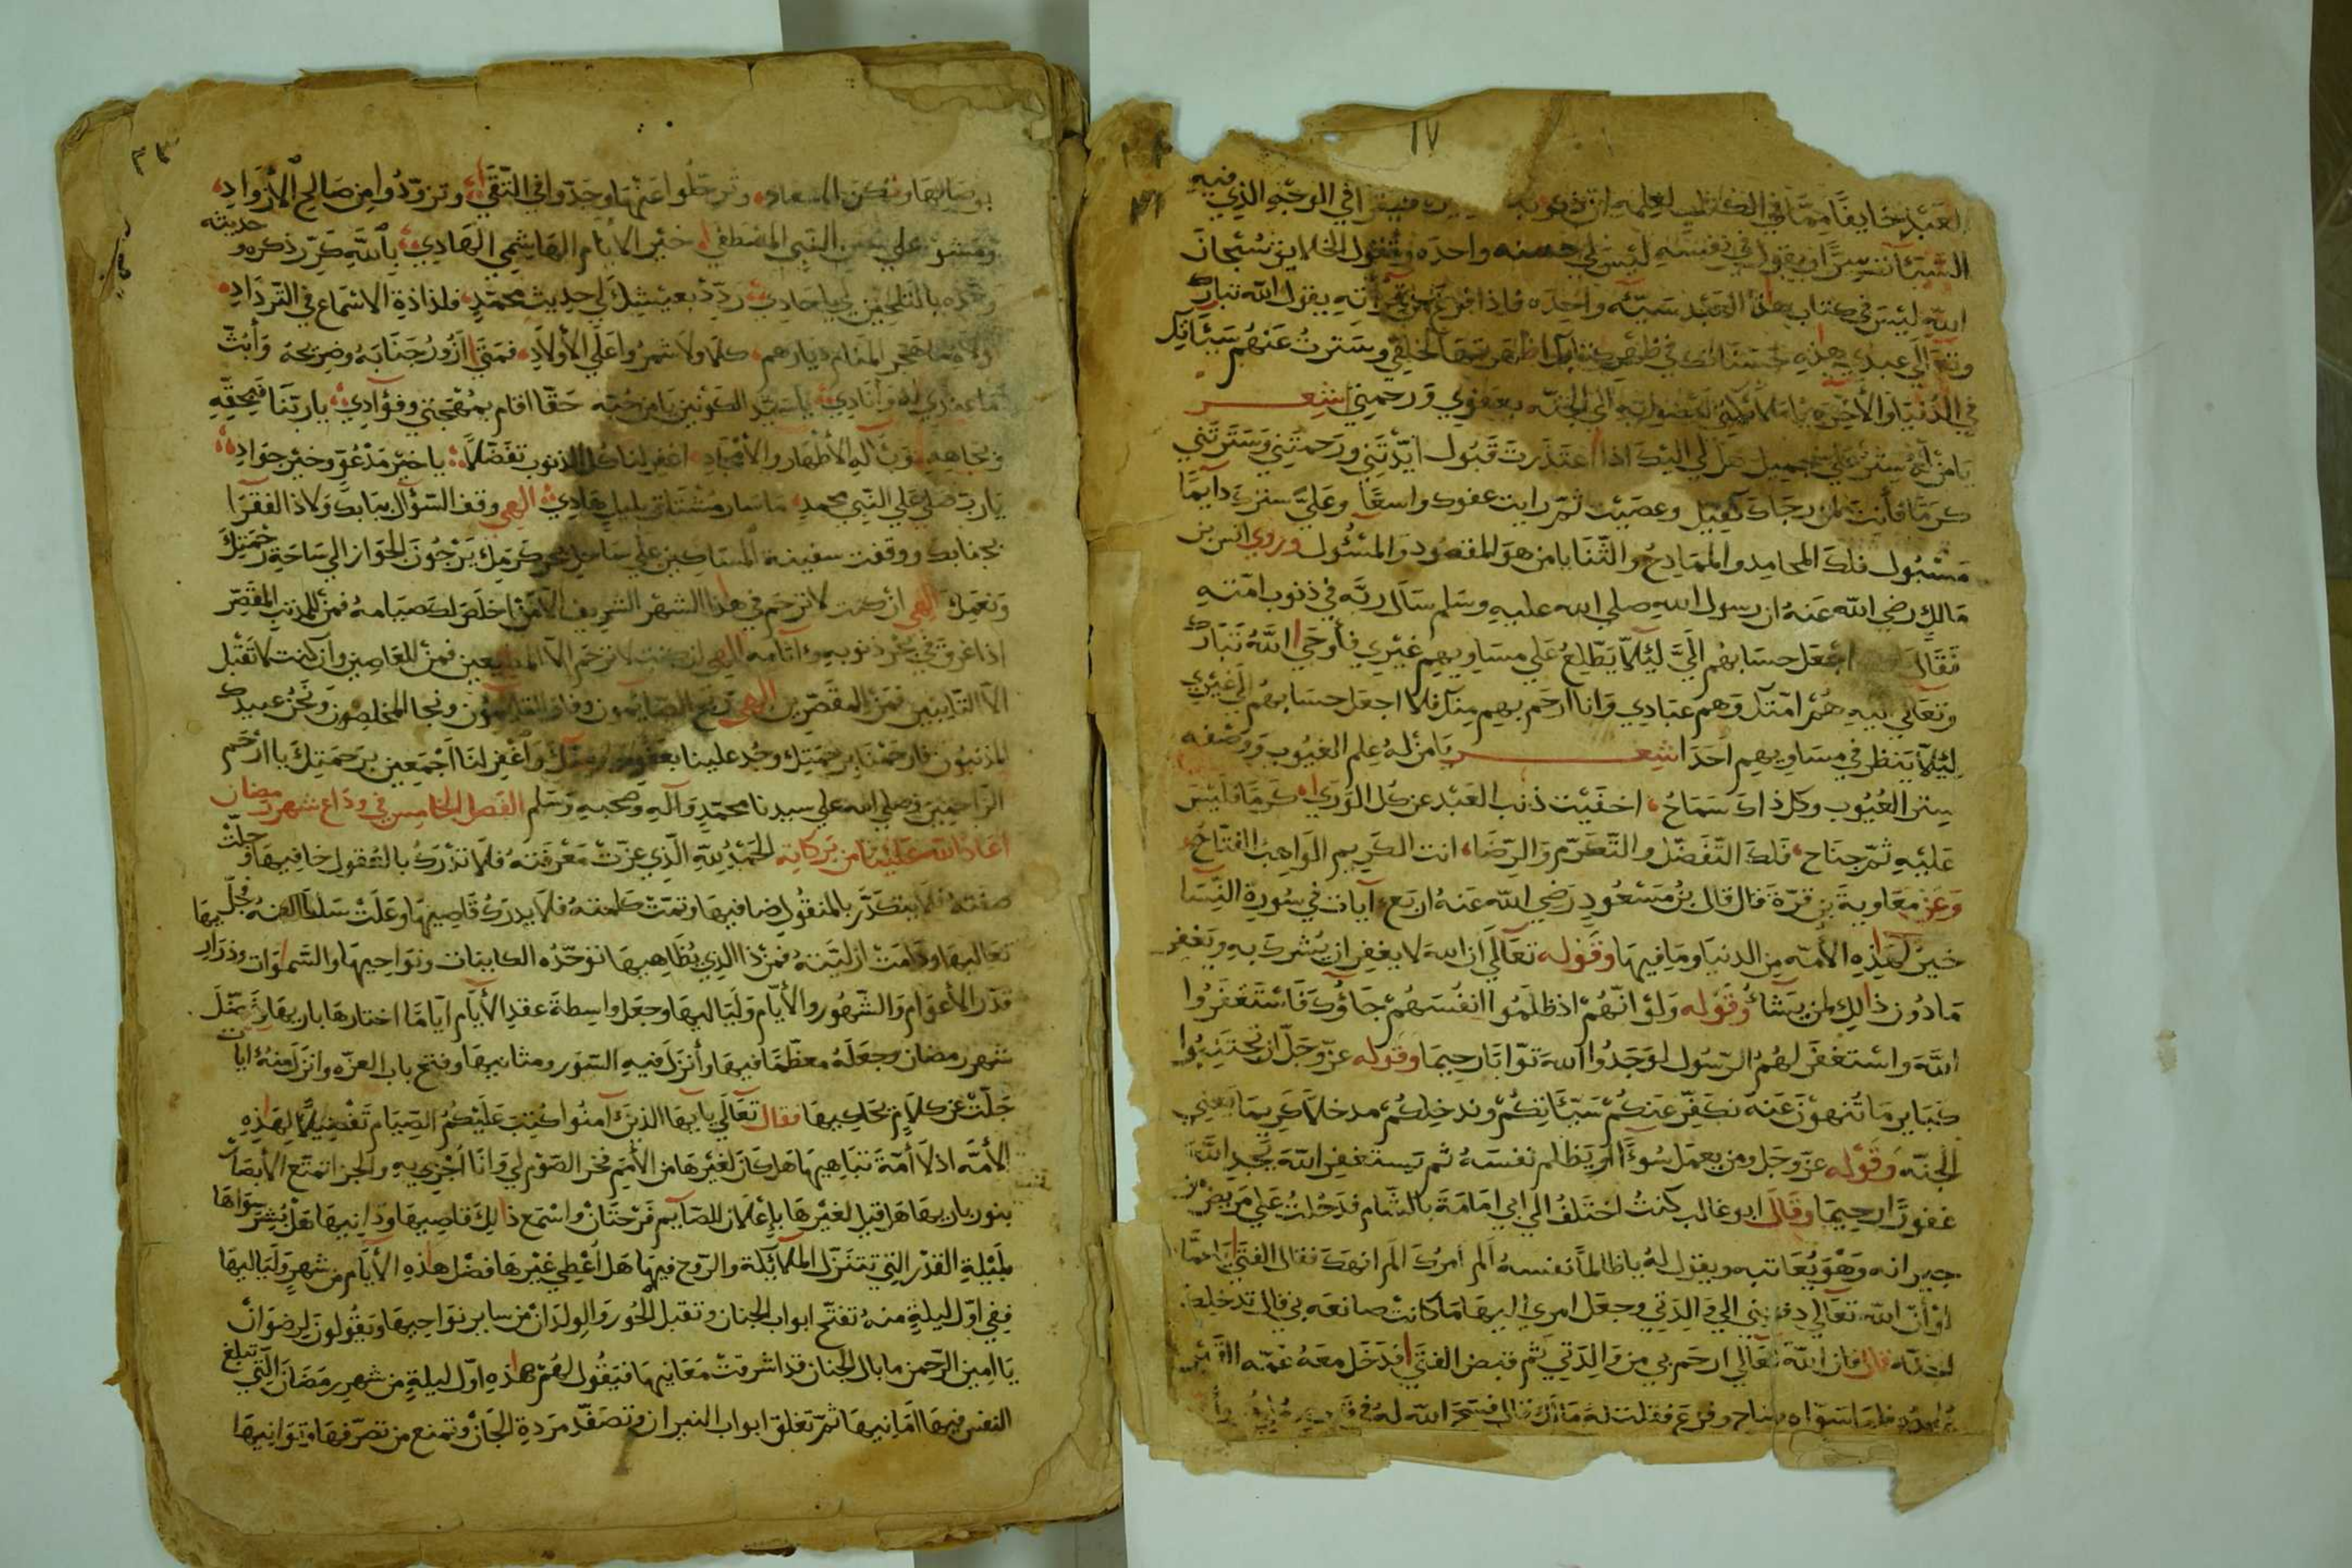 ١٧
العبد خايفًا مما في الكتاب لعلمه ان ذنوبه فيقرا في الوجه الذي فيه
السيئآت سرًا ويقول في نفسه ليس لي حسنه واحده وتقول الخلايق سبحان
الله ليس في كتاب هذا العبد سيئه واحده فاذا فرغ من قرأته يقول الله تبارك
وتعالي عبدي هذه حسناتك في ظهر كتابك اظهرتها لخلقي وسترت عنهم سيئاتك
في الدنيا والاخره يا ملائكتي امضوا به الي الجنه بعفوي ورحمتي شعر
يا من له ستر علي جميل هل لي اليك اذا اعتذرت قبول ايدتني ورحمتني وسترتني
كرمًا فأنت لمن رجاك كفيل وعصيت ثم رايت عفوك واسعًا وعليّ سترك دايمًا
مسبول فلك المحامد والممادح والثنا يا من هو المقصود والمسئول وروي انس بن
مالك رضي الله عنه ان رسول الله صلي الله عليه وسلم سال ربه في ذنوب امته
فقال اجعل حسابهم اليّ ليلّا يطلع علي مساويهم غيري فأوحي الله تبارك
وتعالي اليه هم امتك وهم عبادي وانا ارحم بهم منك فلا اجعل حسابهم الي غيري
ليلّا ينظر في مساويهم احدا شعر يا من له علم الغيوب ووصفه
ستر العيوب وكل ذاك سماح اخفيت ذنب العبد عن كل الوري كرمًا فليس
عليه ثمّ جناح فلك التفضل والتكرم والرضا انت الكريم الواهب الفتاح
وعن معاوية بن قرة قال قال بن مسعود رضي الله عنه اربع آيات في سورة النسا
خير لهذه الأمه من الدنيا وما فيها وقوله تعالي ان الله لا يغفر ان يشرك به ويغفر
ما دون ذلك لمن يشاء وقوله ولو انهم اذ ظلموا انفسهم جاؤك فاستغفروا
الله واستغفر لهم الرسول لوجدوا الله توابًا رحيما وقوله عز وجل ان تجتنبوا
كباير ما تنهون عنه نكفر عنكم سيئاتكم وندخلكم مدخلًا كريما يعني
الجنه وقوله عز وجل ومن يعمل سوءًا او يظلم نفسه ثم يستغفر الله يجد الله
غفورًا رحيما وقال ابو غالب كنت اختلف الي ابي امامة بالشام فدخلت علي مريض من
جيرانه وهو يعاتبه ويقول له يا ظالمًا نفسه ألم امرك الم انهك فقال الفتي يا عماه
لو أن الله تعالي دفعني الي والدتي وجعل امري اليها ما كانت صانعه بي قال تدخلك
الجنه قال فان الله تعالي ارحم بي من والدتي ثم قبض الفتي فدخل معه عمه القبر
فلما سواه صاح وفزع فقلت له مالك قال فسح الله له في قبره
وترحلوا عنها وجدوا في التقي وتزودوا من صالح الأزواد
النبي المصطفي خير الانام الهاشمي الهادي بالله كرر ذكره وحديثه
يا حادي ردد بعيشك لي حديث محمد فلذاذة الاسماع في الترداد
المنام ديارهم كلا ولا شمروا علي الأولاد فمتي ازور جنابه وضريحه وأبث
وأنادي يا سيد الكونين يا من حبه حقا اقام بمهجتي وفؤادي يا ربنا فبحقه
وبجاهه وبآله الأطهار والأمجاد اغفر لنا كل الذنوب تفضلًا يا خير مدعو وخير جواد
يا رب صل علي النبي محمد ما سار مشتاق بليل هادي الهي وقف السؤال ببابك ولاذ الفقرا
بجنابك ووقفت سفينة المساكين علي ساحل بحر كرمك يرجون الجواز الي ساحة رحمتك
ونعمك الهي ان كنت لا ترحم في هذا الشهر الشريف الا من اخلص لك صيامه فمن للمذنب المقصر
اذا غرق في بحر ذنوبه وآثامه الهي ان كنت لا ترحم الا المطيعين فمن للعاصين وان كنت لا تقبل
الا التايبين فمن للمقصرين الهي ربح الصائمون وفاز القايمون ونجا المخلصون ونحن عبيدك
المذنبون فارحمنا برحمتك وجد علينا بعفوك واغفر لنا أجمعين برحمتك يا ارحم
الراحمين وصلي الله علي سيدنا محمد وآله وصحبه وسلم الفصل الخامس في وداع شهر رمضان
اعاد الله علينا من بركاته الحمد لله الذي عزت معرفته فلا تدرك بالعقول خافيها وجلت
صفته فلا يتكدر بالمنقول ضافيها وتمت كلمته فلا يدرك قاصيها وعلت سلطانه فجل بها
تعاليها ودامت ازليته فمن ذا الذي يظاهيها توحده الكاينات ونواحيها والسموات وذراريها
قدر الأعوام والشهور والأيام ولياليها وجعل واسطة عقد الأيام ايامًا اختارها باريها
شهر رمضان وجعله معظمًا فيها وأنزل فيه السور ومثانيها وفتح باب العزه وانزل منه آيات
جلت عن كلام يحاكيها فقال تعالي يا أيها الذين آمنوا كتب عليكم الصيام تفضيلًا لهذه
الأمه اذ لا أمة تباهيها هل كان لغيرها من الأمم فخر الصوم لي وانا اجزي به والجزا تمتع الأبصار
بنور باريها هل قيل لغيرها بإعلان للصايم فرحتان واسمع ذلك قاصيها ودانيها هل بشر سواها
بليلة القدر التي تتنزل الملائكة والروح فيها هل أعطي غيرها فضل هذه الأيام من شهر ولياليها
ففي اول ليلة منه تفتح ابواب الجنان وتقبل الحور والولدان من ساير نواحيها ويقولون لرضوان
يا امين الرحمن ما بال الجنان قد اشرقت مغانيها فيقول لهم هذه اول ليلة من شهر رمضان التي تبلغ
النفس فيها امانيها ثم تغلق ابواب النيران وتصفد مردة الجان وتمنع من تصرفها وتوانيها